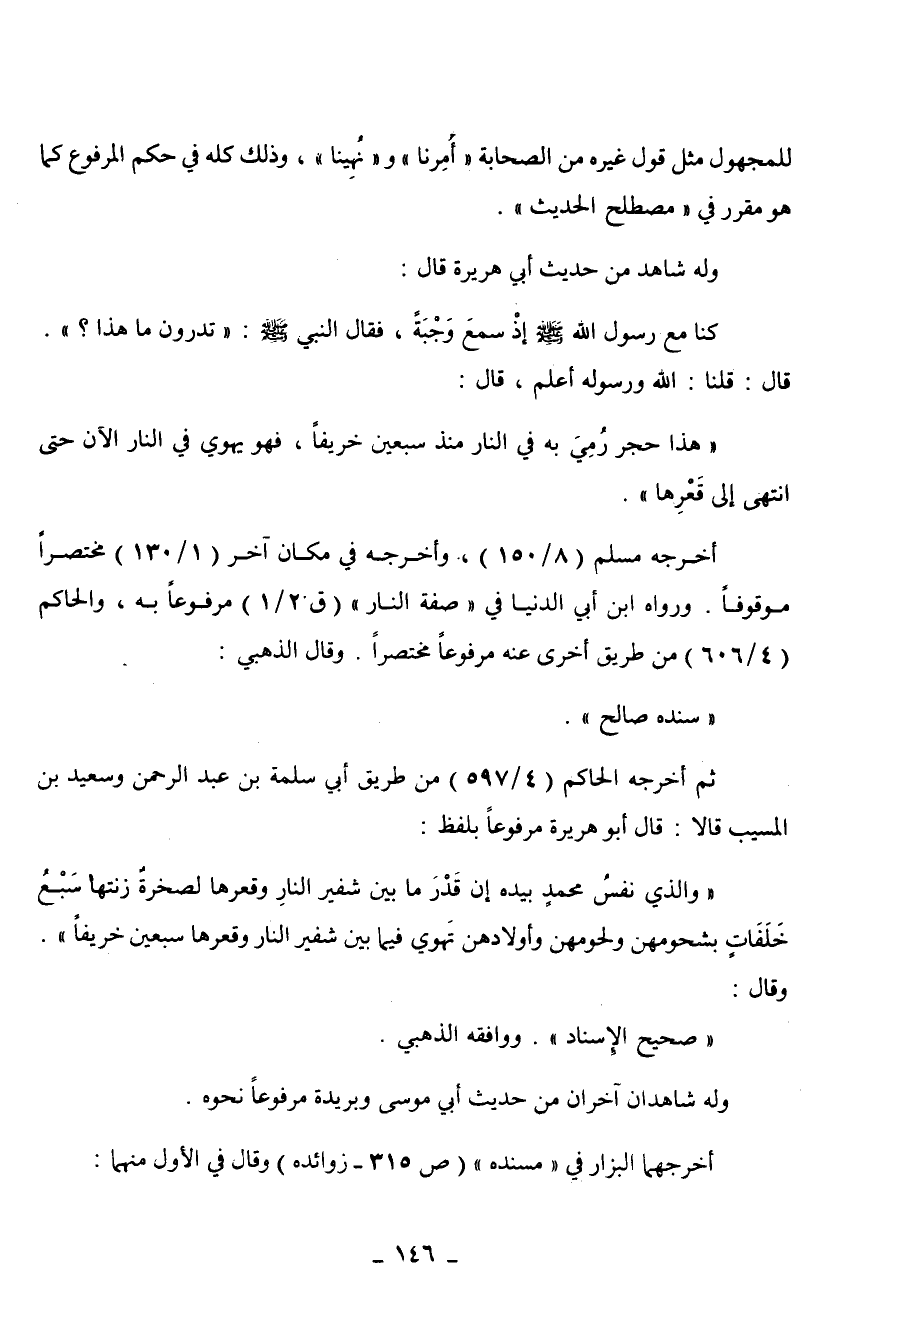 للمجهول مثل قول غيره من الصحابة « أُمِرنا » و « نُهِينا » ، وذلك كله في حكم المرفوع كما
هو مقرر في « مصطلح الحديث » .
وله شاهد من حديث أبي هريرة قال :
كنا مع رسول الله ﷺ إذْ سمعَ وَجْبَةً ، فقال النبي ﷺ : « تدرون ما هذا ؟ » .
قال : قلنا : الله ورسوله أعلم ، قال :
« هذا حجر رُمِيَ به في النار منذ سبعين خريفاً ، فهو يهوي في النار الآن حتى
انتهى إلى قَعْرِها » .
أخرجه مسلم ( ٨/١٥٠ ) ، وأخرجه في مكان آخر ( ١/١٣٠ ) مختصراً
موقوفاً . ورواه ابن أبي الدنيا في « صفة النار » ( ق ١/٢ ) مرفوعاً به ، والحاكم
( ٤/٦٠٦ ) من طريق أخرى عنه مرفوعاً مختصراً . وقال الذهبي :
« سنده صالح » .
ثم أخرجه الحاكم ( ٤/٥٩٧ ) من طريق أبي سلمة بن عبد الرحمن وسعيد بن
المسيب قالا : قال أبو هريرة مرفوعاً بلفظ :
« والذي نفسُ محمدٍ بيده إن قَدْرَ ما بين شفير النارِ وقعرها لصخرةٌ زنتها سَبْعُ
خَلَفَاتٍ بشحومهن ولحومهن وأولادهن تَهوي فيما بين شفير النار وقعرها سبعين خريفاً » .
وقال :
« صحيح الإِسناد » . ووافقه الذهبي .
وله شاهدان آخران من حديث أبي موسى وبريدة مرفوعاً نحوه .
أخرجهما البزار في « مسنده » ( ص ٣١٥ ـ زوائده ) وقال في الأول منهما :
ـ ١٤٦ ـ